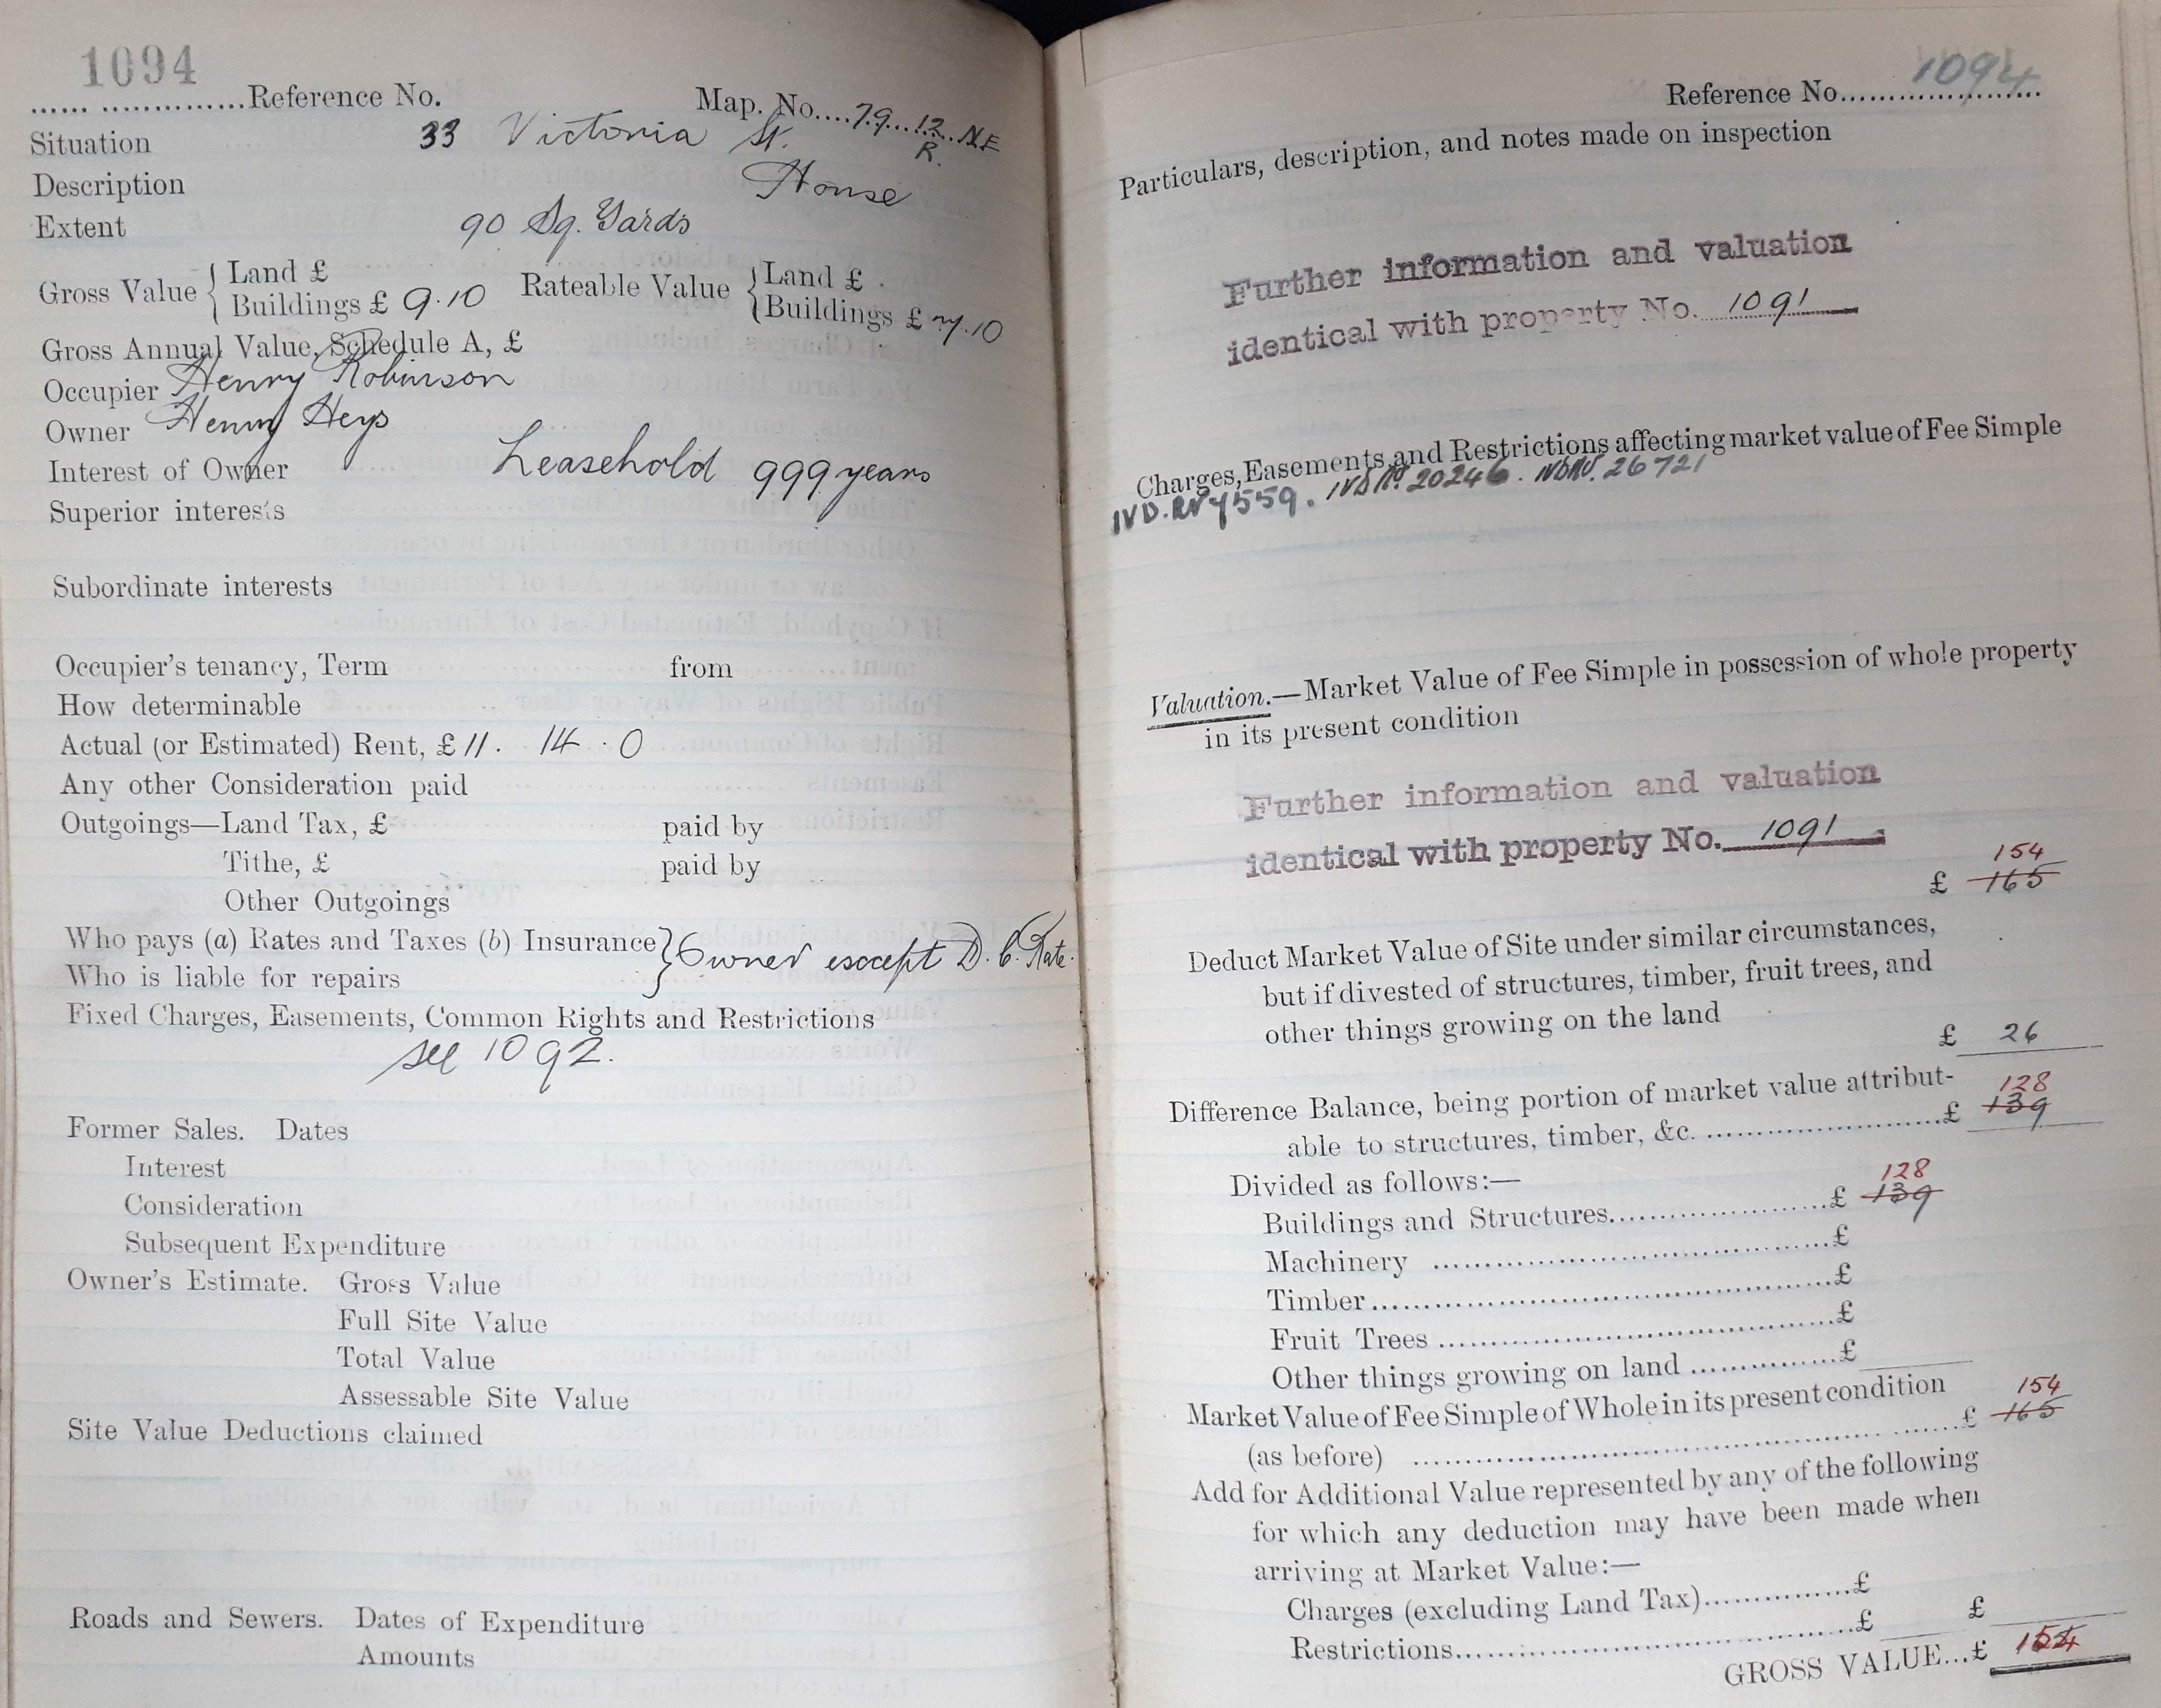 1094
...... ..............Reference No.
Map. No....79...12...N.E
R.
Situation 33 Victoria St.
Description House
Extent 90 Sq. Yards
Gross Value { Land £
Buildings £ 9.10
Rateable Value { Land £ .
Buildings £ 7.10
Gross Annual Value, Schedule A, £
Occupier Henry Robinson
Owner Henry Heys
Interest of Owner Leasehold 999 years
Superior interests
Subordinate interests
Occupier's tenancy, Term from
How determinable
Actual (or Estimated) Rent, £ 11. 14 . 0
Any other Consideration paid
Outgoings—Land Tax, £ paid by
Tithe, £ paid by
Other Outgoings
Who pays (a) Rates and Taxes (b) Insurance } Owner except D. C. Rate.
Who is liable for repairs
Fixed Charges, Easements, Common Rights and Restrictions
see 1092.
Former Sales. Dates
Interest
Consideration
Subsequent Expenditure
Owner's Estimate. Gross Value
Full Site Value
Total Value
Assessable Site Value
Site Value Deductions claimed
Roads and Sewers. Dates of Expenditure
Amounts
Reference No. 1094
Particulars, description, and notes made on inspection
Further information and valuation
identical with property No. 1091
Charges, Easements, and Restrictions affecting market value of Fee Simple
IVD. 559. IVD 20246. 26721
Valuation.—Market Value of Fee Simple in possession of whole property
in its present condition
Further information and valuation
identical with property No. 1091
154
£ 165
Deduct Market Value of Site under similar circumstances,
but if divested of structures, timber, fruit trees, and
other things growing on the land
£ 26
Difference Balance, being portion of market value attribut-
128
able to structures, timber, &c. ..............................£ 139
Divided as follows:—
128
Buildings and Structures..........................£ 139
Machinery ................................................£
Timber......................................................£
Fruit Trees ................................................£
Other things growing on land ..................£
Market Value of Fee Simple of Whole in its present condition
154
(as before) ..............................................................£ 165
Add for Additional Value represented by any of the following
for which any deduction may have been made when
arriving at Market Value:—
Charges (excluding Land Tax)..................£
Restrictions................................................£ £
GROSS VALUE...£ 154